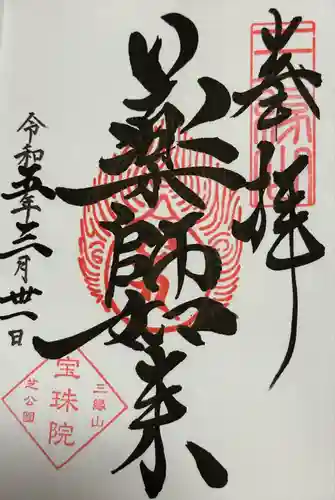 奉拝
薬師如来
令和五年三月卅一日
三縁山
宝珠院
芝公園